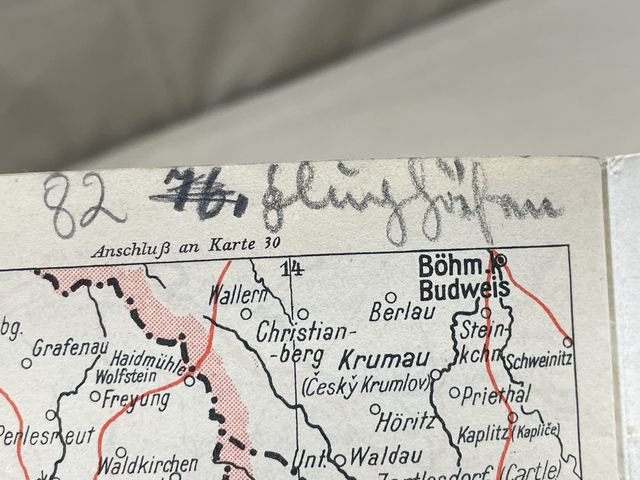 82 76. Flughäfen
Anschluß an Karte 30
14
Böhm.
Budweis
Wallern
Berlau
Christian-
-berg
Stein-
kchn.
bg.
Grafenau
Haidmühle
Krumau
Schweinitz
Wolfstein
(Český Krumlov)
Freyung
Priethal
Höritz
Perlesreut
Kaplitz (Kaplice)
Waldkirchen
Unt.
Waldau
(Cartle)